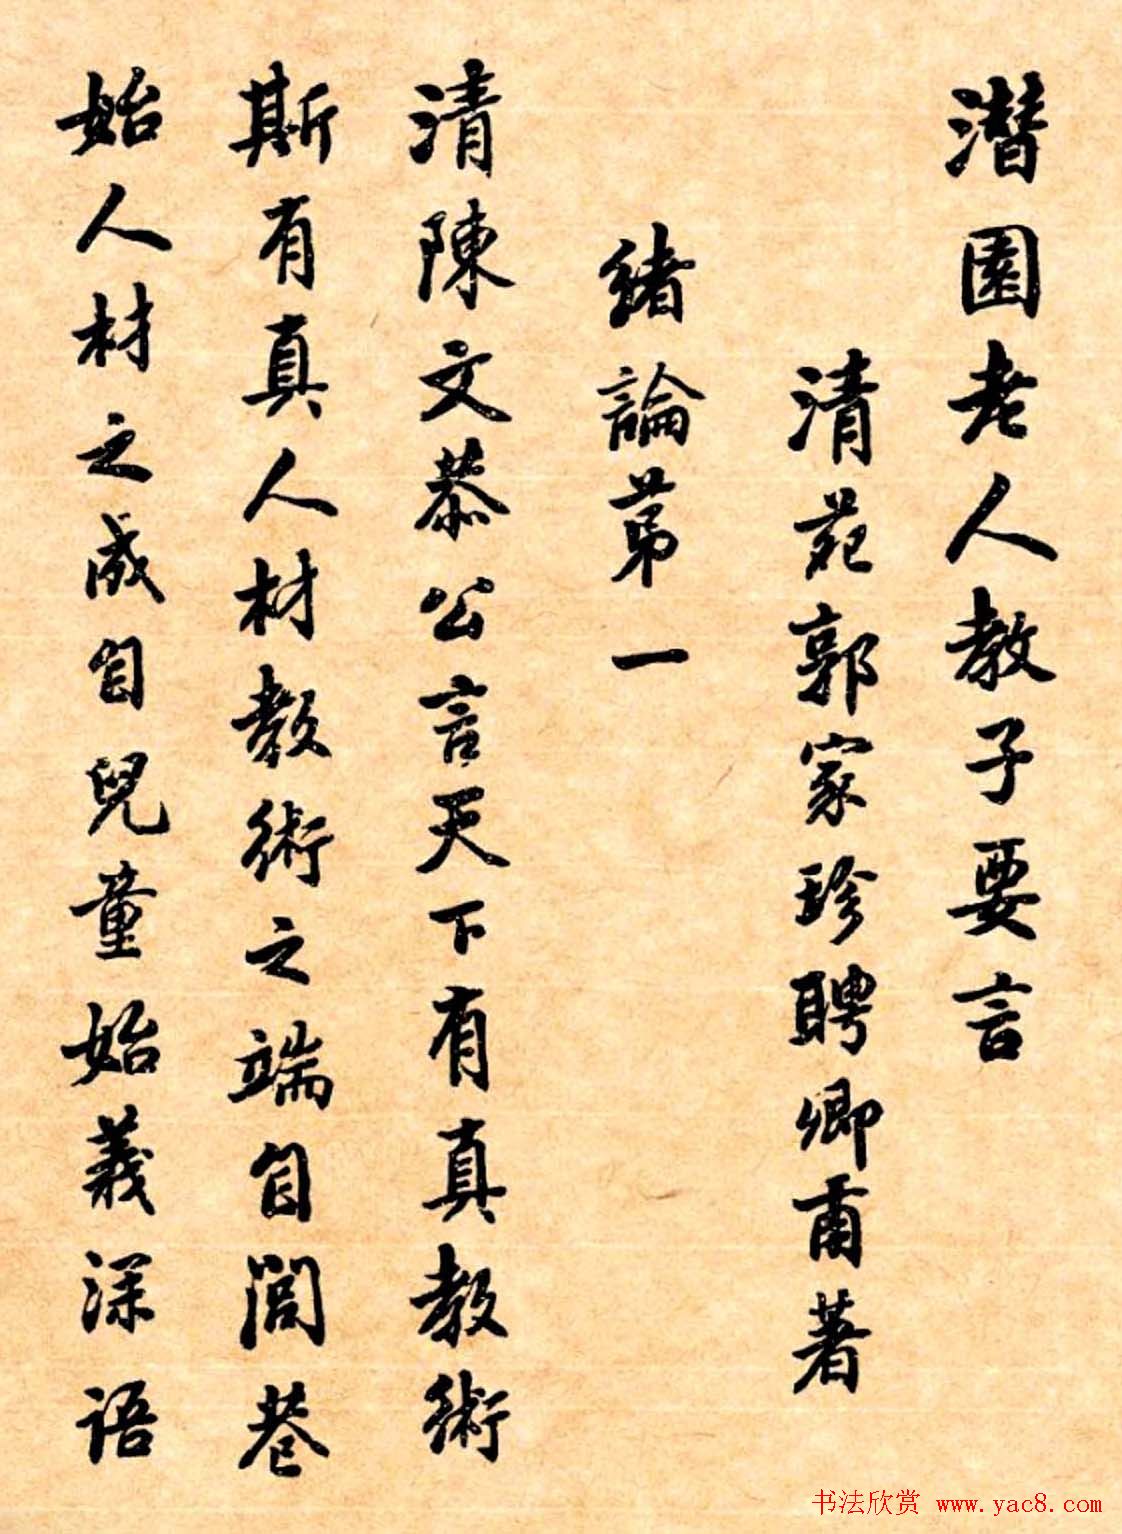 潛園老人教子要言
清苑郭家珍聘卿甫著
緒論第一
清陳文恭公言天下有真教術
斯有真人材教術之端自閭巷
始人材之成自兒童始義深語
书法欣赏 www.yac8.com